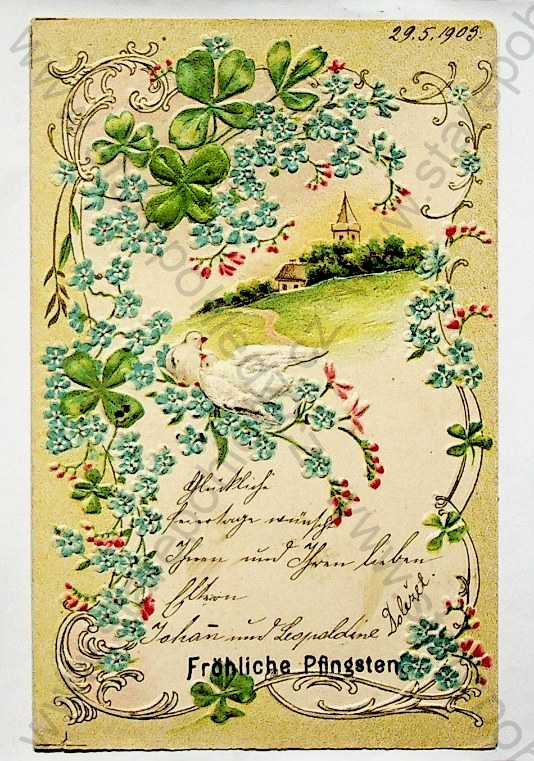 29.5.1903.
Glückliche
feiertage wünsche
Ihnen und Ihren lieben
Eltern
Johann und Leopoldine Dolezel.
Fröhliche Pfingsten